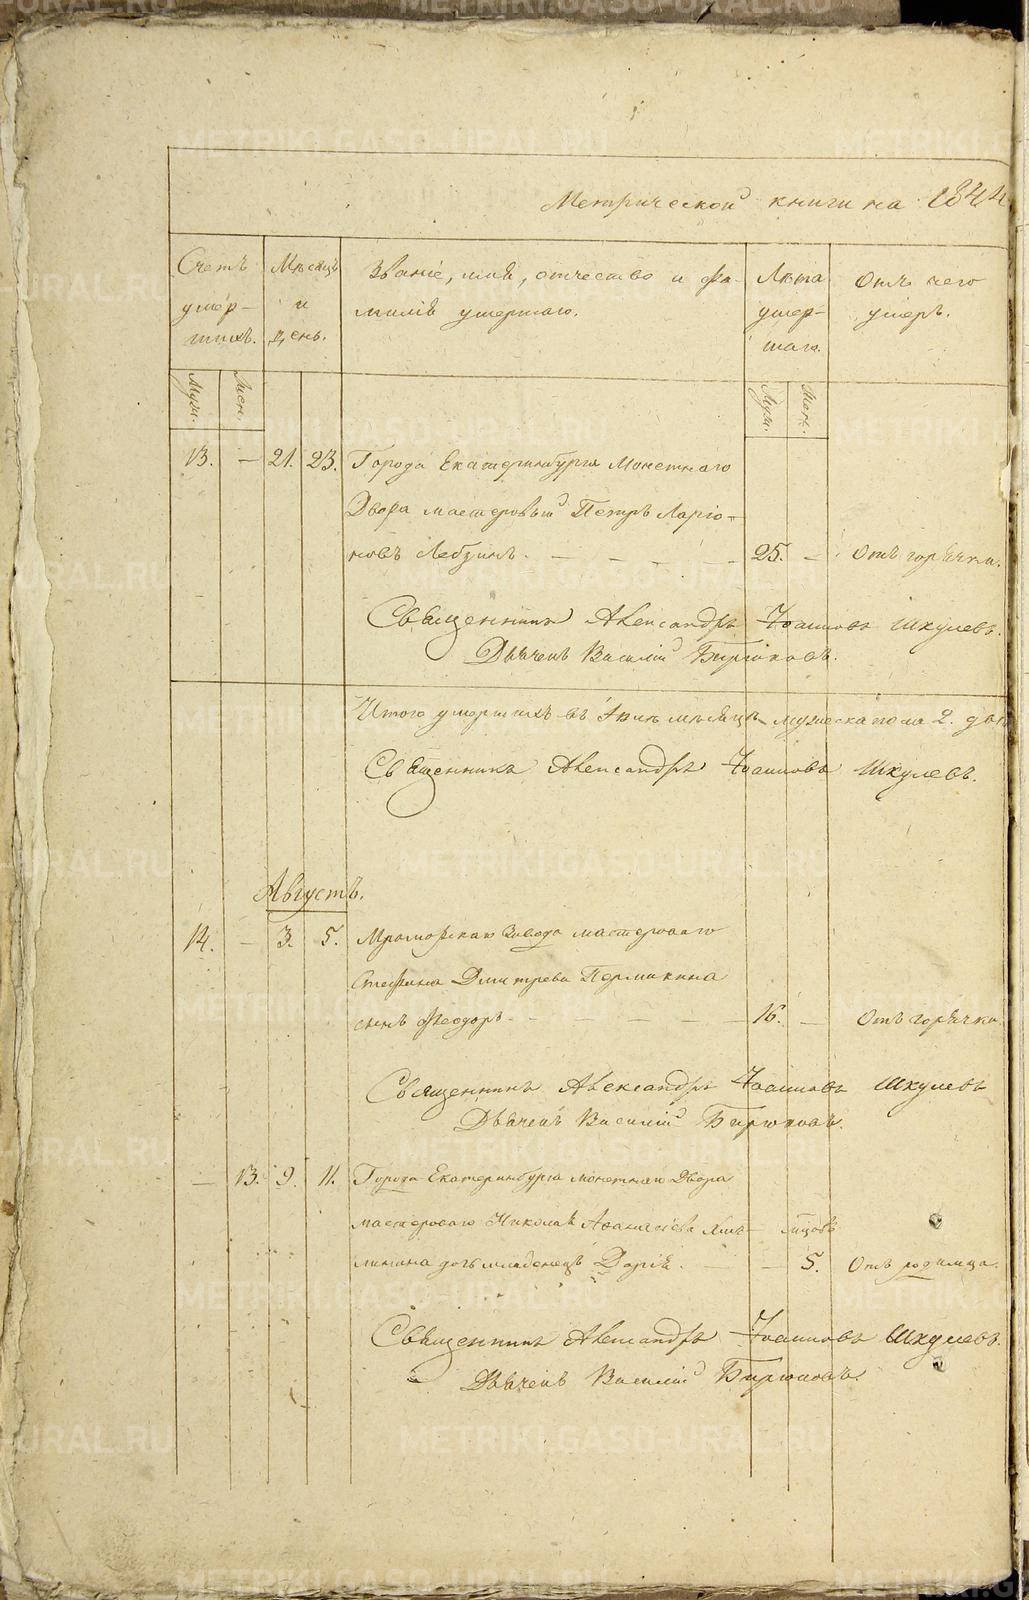 Метрической книги на 1844
Счетъ умер-шихъ. Мѣсяцъ и день. Званіе, имя, отчество и фа-милія умершаго. Лѣта умер-шаго. Отъ чего умеръ.
Муж. Жен. Муж. Жен.
13. — 21. 23. Города Екатеринбурга Монетнаго
Двора мастеровый Петръ Ларіо-
новъ Лебзинъ. — 25. — Отъ горячки.
Священникъ Александръ Іоанновъ Шкулевъ.
Дьячекъ Василій Бирюковъ.
Итого умершихъ въ Іюлѣ мѣсяцѣ мужеска пола 2. два
Священникъ Александръ Іоанновъ Шкулевъ.
Августъ.
14. — 3. 5. Мраморскаго Завода мастероваго
Стефана Дмитрева Пермикина
сынъ Феодоръ. — 16. — Отъ горячки
Священникъ Александръ Іоанновъ Шкулевъ
Дьячекъ Василій Бирюковъ.
— 13. 9. 11. Города Екатеринбурга монетнаго Двора
мастероваго Николая Аѳанасіева мѣсяцовъ
дочь младенецъ Дарія. — 5. Отъ родимца.
Священникъ Александръ Іоанновъ Шкулевъ.
Дьячекъ Василій Бирюковъ.
METRIKI.GASO-URAL.RU